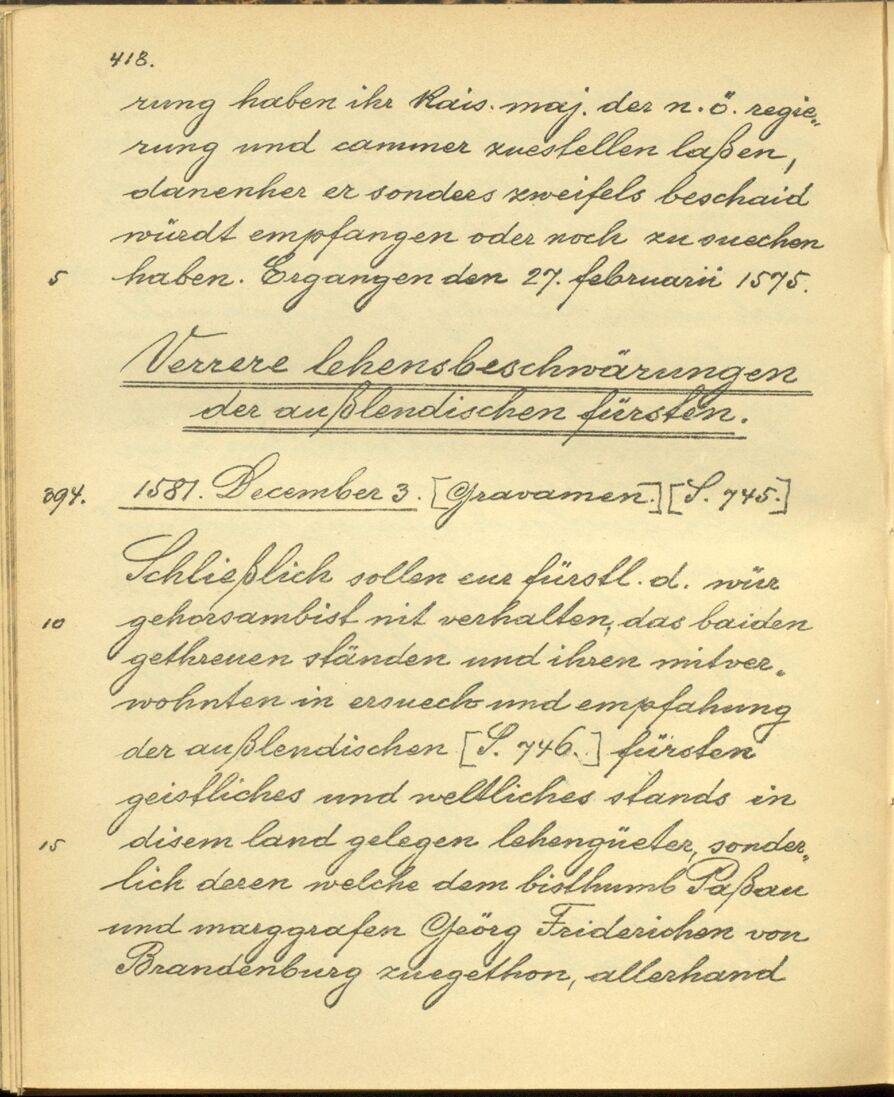 418.
rung haben ihr Kais. maj. der n. ö. regie„
rung und cammer zuestellen laßen,
danenher er sonders zweifels beschaid
würdt empfangen oder noch zu suechen
5 haben. Ergangen den 27. februarii 1575.
Verrere lehensbeschwärungen
der außlendischen fürsten.
394. 1581. December 3. [Gravamen.] [S. 745.]
Schließlich sollen eur fürstl. d. wür
10 gehorsambist nit verhalten, das baiden
gethreuen ständen und ihren mitver„
wohnten in ersuech- und empfahung
der außlendischen [S. 746.] fürsten
geistliches und weltliches stands in
15 disem land gelegen lehengüeter, sonder„
lich deren welche dem bisthumb Paßau
und marggrafen Geörg Friderichen von
Brandenburg zuegethon, allerhand